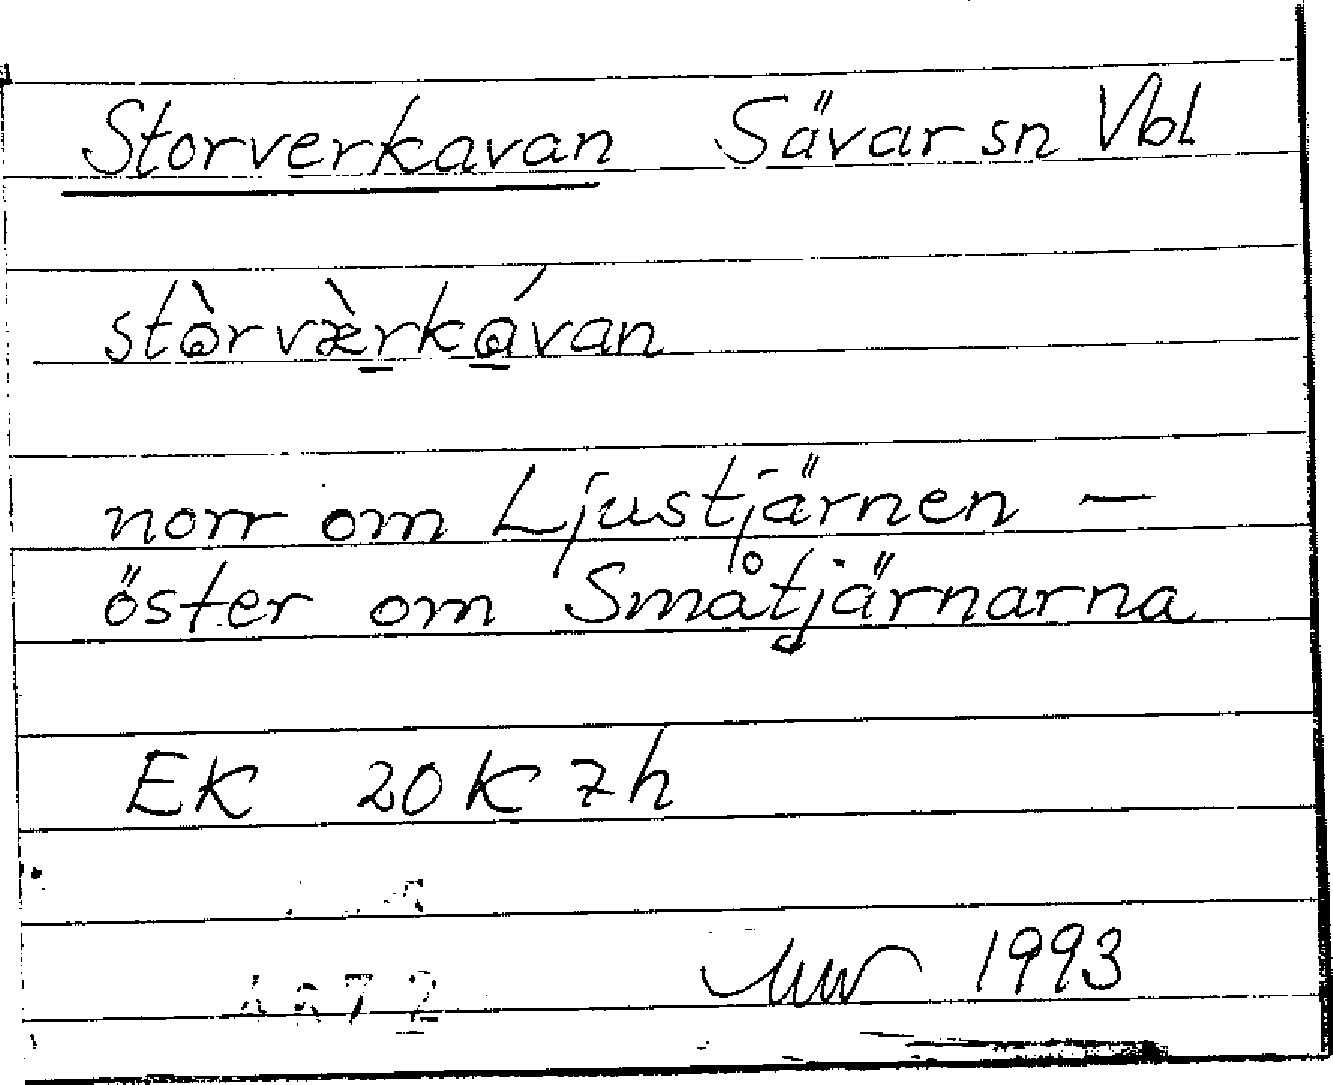 Storverkavan Sävar sn Vbl
stòrvæ̀rkávan
norr om Ljustjärnen —
öster om Småtjärnarna
EK 20K 7h
1993